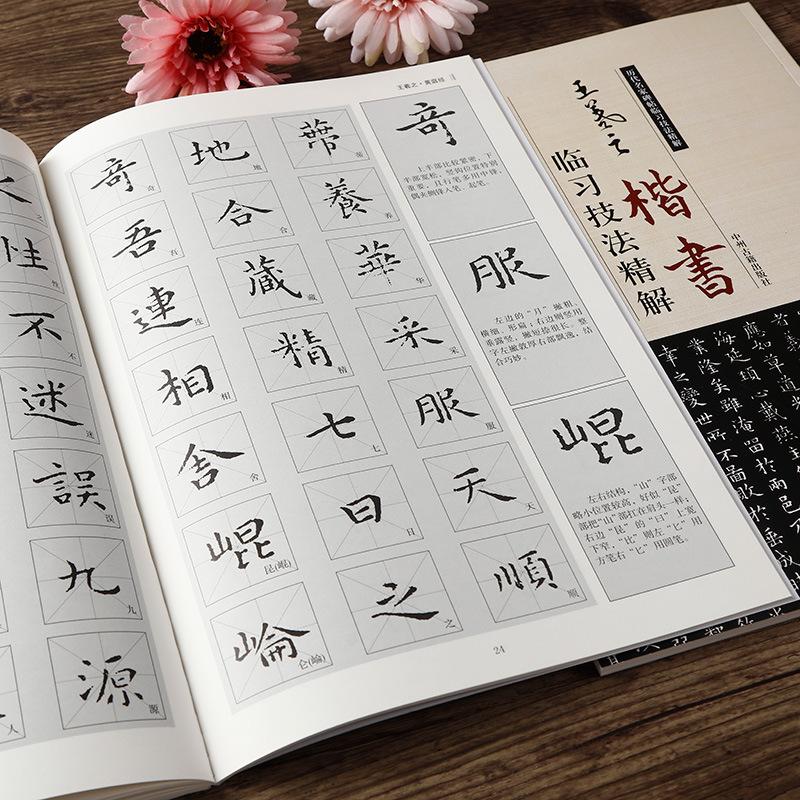 王羲之·黄庭经
奇
上半部比较紧密，下
半部宽松，竖钩位置特别
重要，且行笔多用中锋，
偶夹侧锋入笔、起笔。
服
左边的“月”撇粗、
横细、形扁；右边则竖用
垂露竖，撇短捺很长。整
字左撇敦厚右部飘逸，结
合巧妙。
崐
左右结构，“山”字部
略小位置较高，好似“昆”
部把“山”部扛在肩头一样；
右边“昆”的“日”上宽
下窄，“比”则左“匕”用
方笔右“匕”用圆笔。
蔕 蒂
養 养
華 华
采 采
服 服
天 天
順 顺
地 地
合 合
藏 藏
精 精
七 七
日 日
之 之
奇 奇
吾 吾
連 连
相 相
舍 舍
崐 昆(崐)
崘 仑(崘)
24
之 之
性 性
不 不
迷 迷
誤 误
九 九
源 源
人
历代名家碑帖临习技法精解
王羲之
楷書
临习技法精解
中州古籍出版社